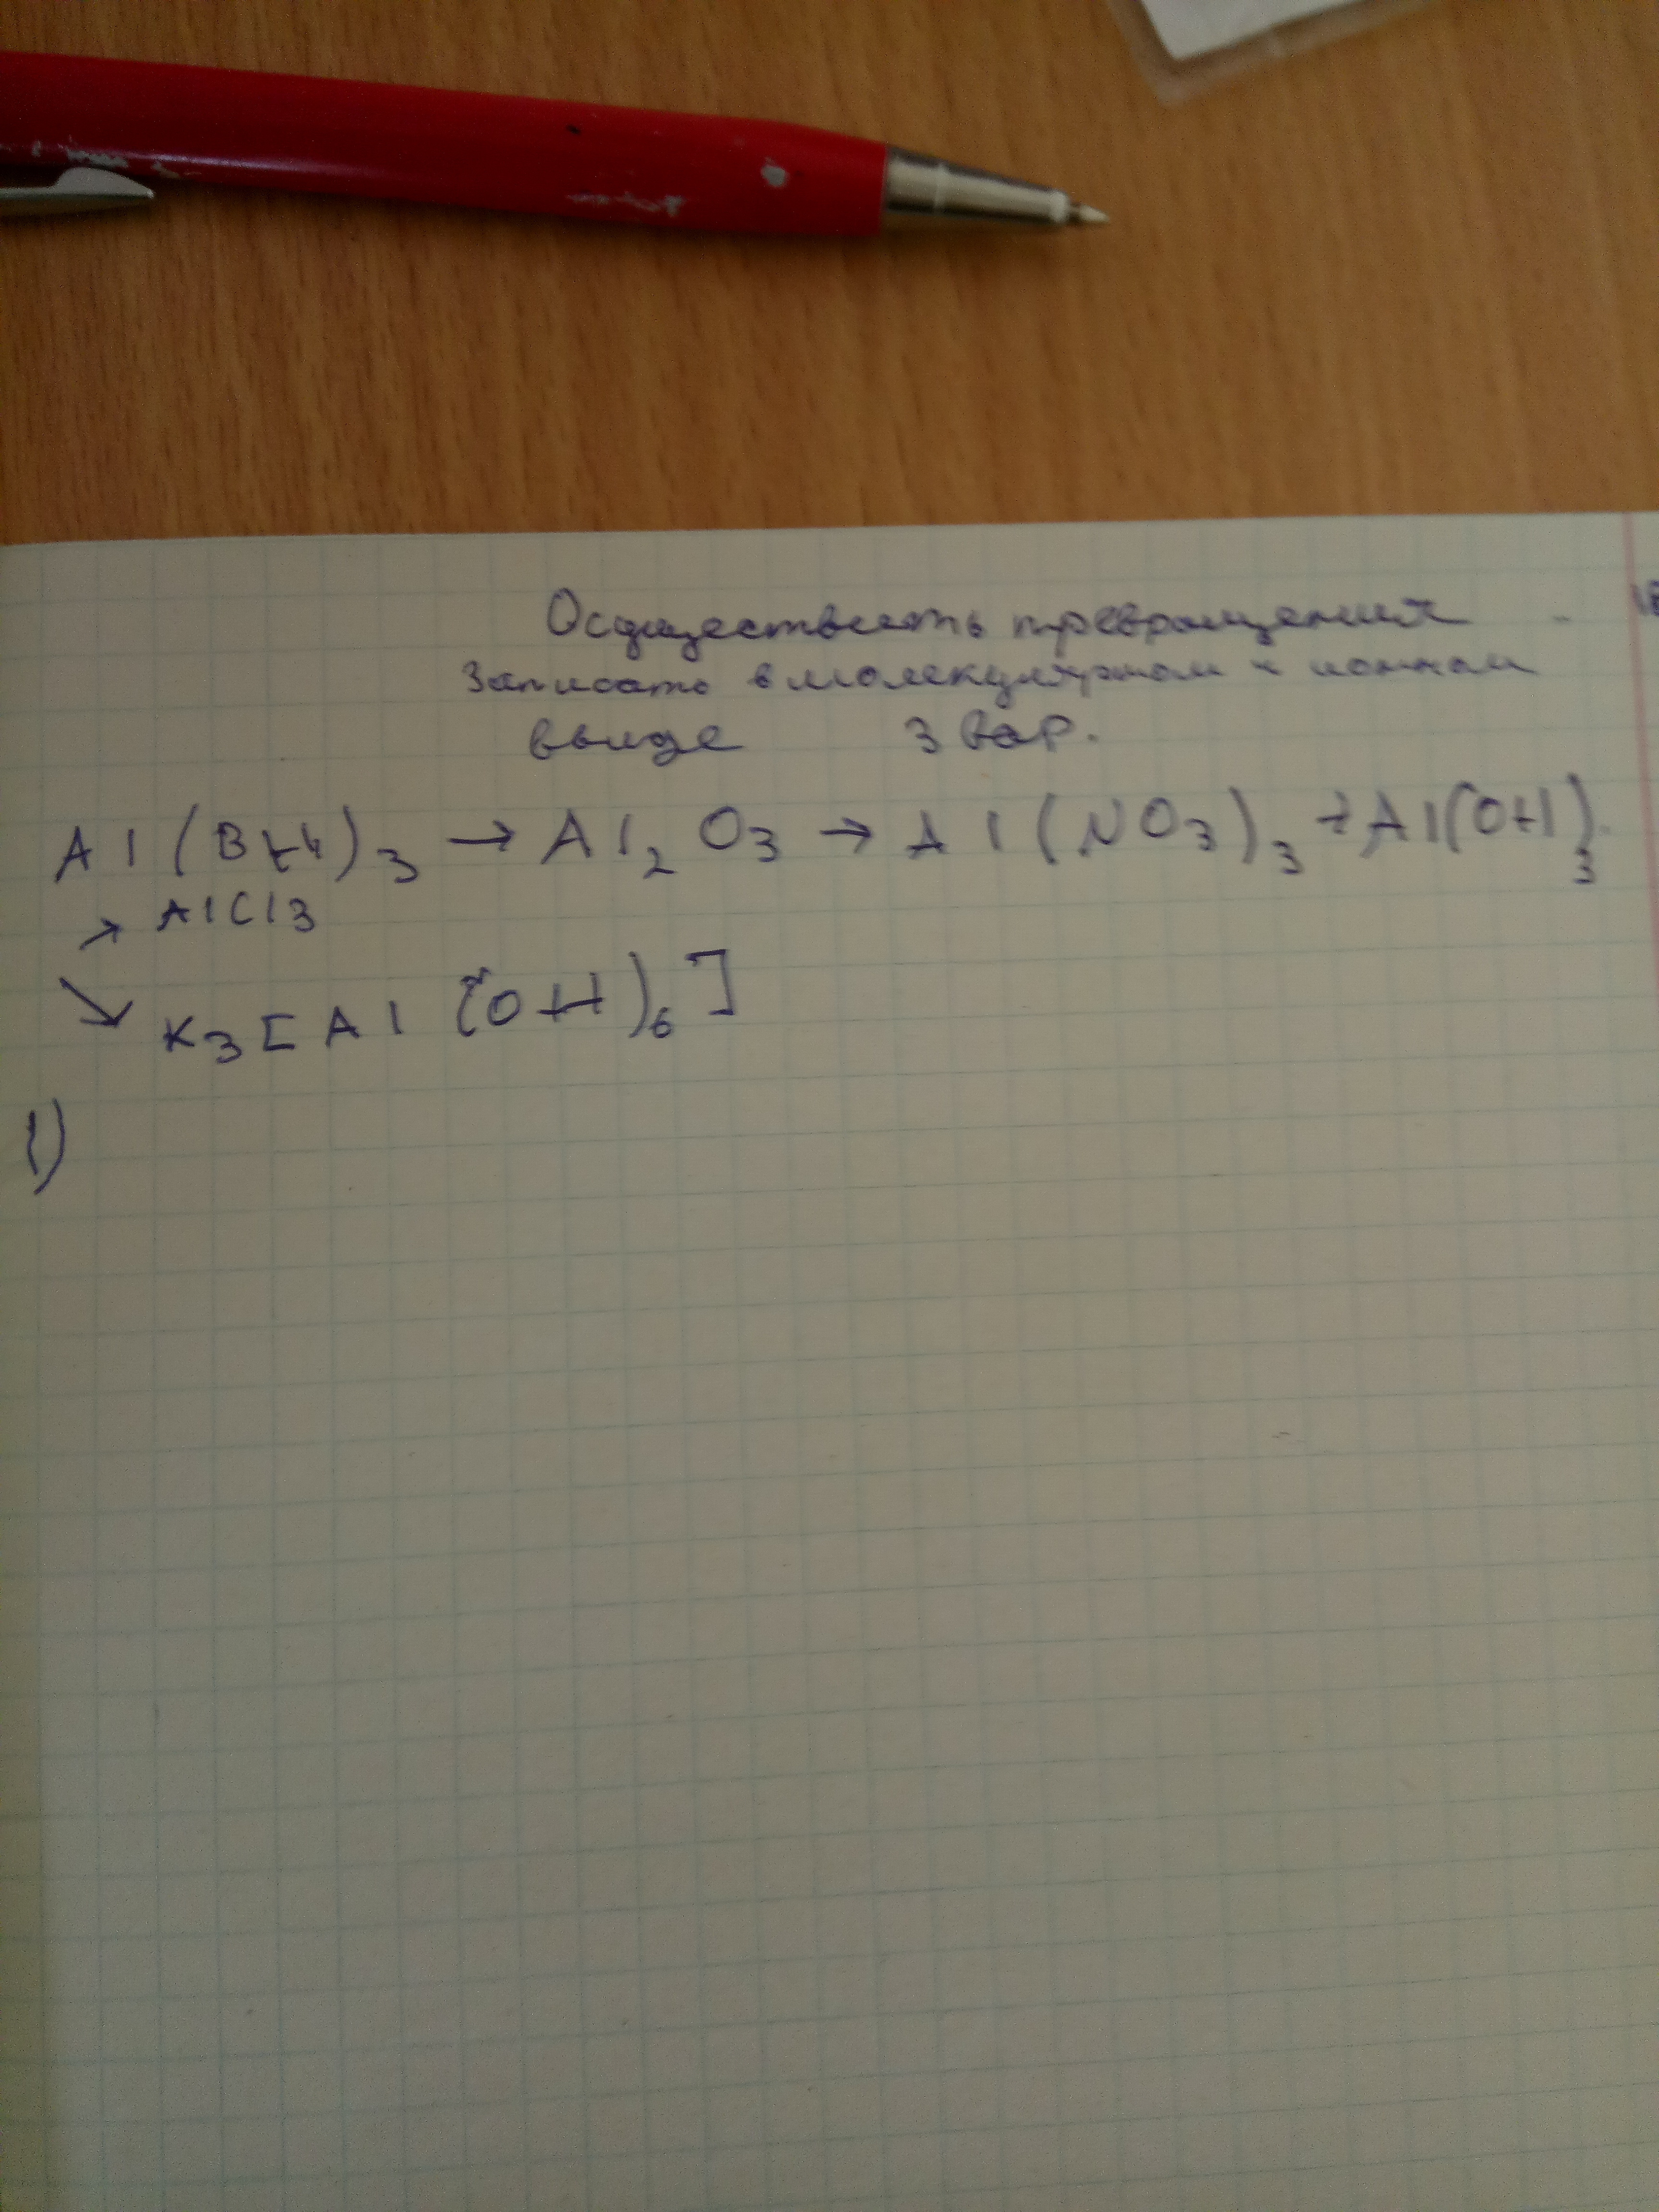 Осуществить превращения
Записать в молекулярном и ионном
виде 3 вар.
Al(BH4)3 → Al2O3 → Al(NO3)3 → Al(OH)3
→ AlCl3
↘ K3[Al(OH)6]
1)